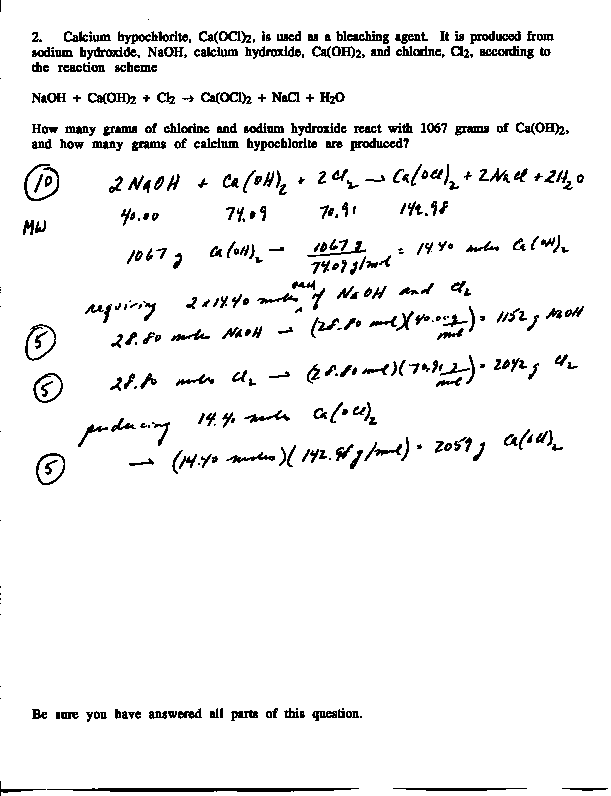 2. Calcium hypochlorite, Ca(OCl)2, is used as a bleaching agent. It is produced from
sodium hydroxide, NaOH, calcium hydroxide, Ca(OH)2, and chlorine, Cl2, according to
the reaction scheme
NaOH + Ca(OH)2 + Cl2 → Ca(OCl)2 + NaCl + H2O
How many grams of chlorine and sodium hydroxide react with 1067 grams of Ca(OH)2,
and how many grams of calcium hypochlorite are produced?
10 2 NaOH + Ca(OH)2 + 2 Cl2 → Ca(OCl)2 + 2 NaCl + 2 H2O
MW 40.00 74.09 70.91 142.98
1067 g Ca(OH)2 → 1067 g / 74.09 g/mol = 14.40 moles Ca(OH)2
requiring 2 x 14.40 moles each of NaOH and Cl2
5 28.80 moles NaOH → (28.80 mol)(40.00 g/mol) = 1152 g NaOH
5 28.80 moles Cl2 → (28.80 mol)(70.91 g/mol) = 2042 g Cl2
producing 14.40 moles Ca(OCl)2
5 → (14.40 moles)(142.98 g/mol) = 2059 g Ca(OCl)2
Be sure you have answered all parts of this question.